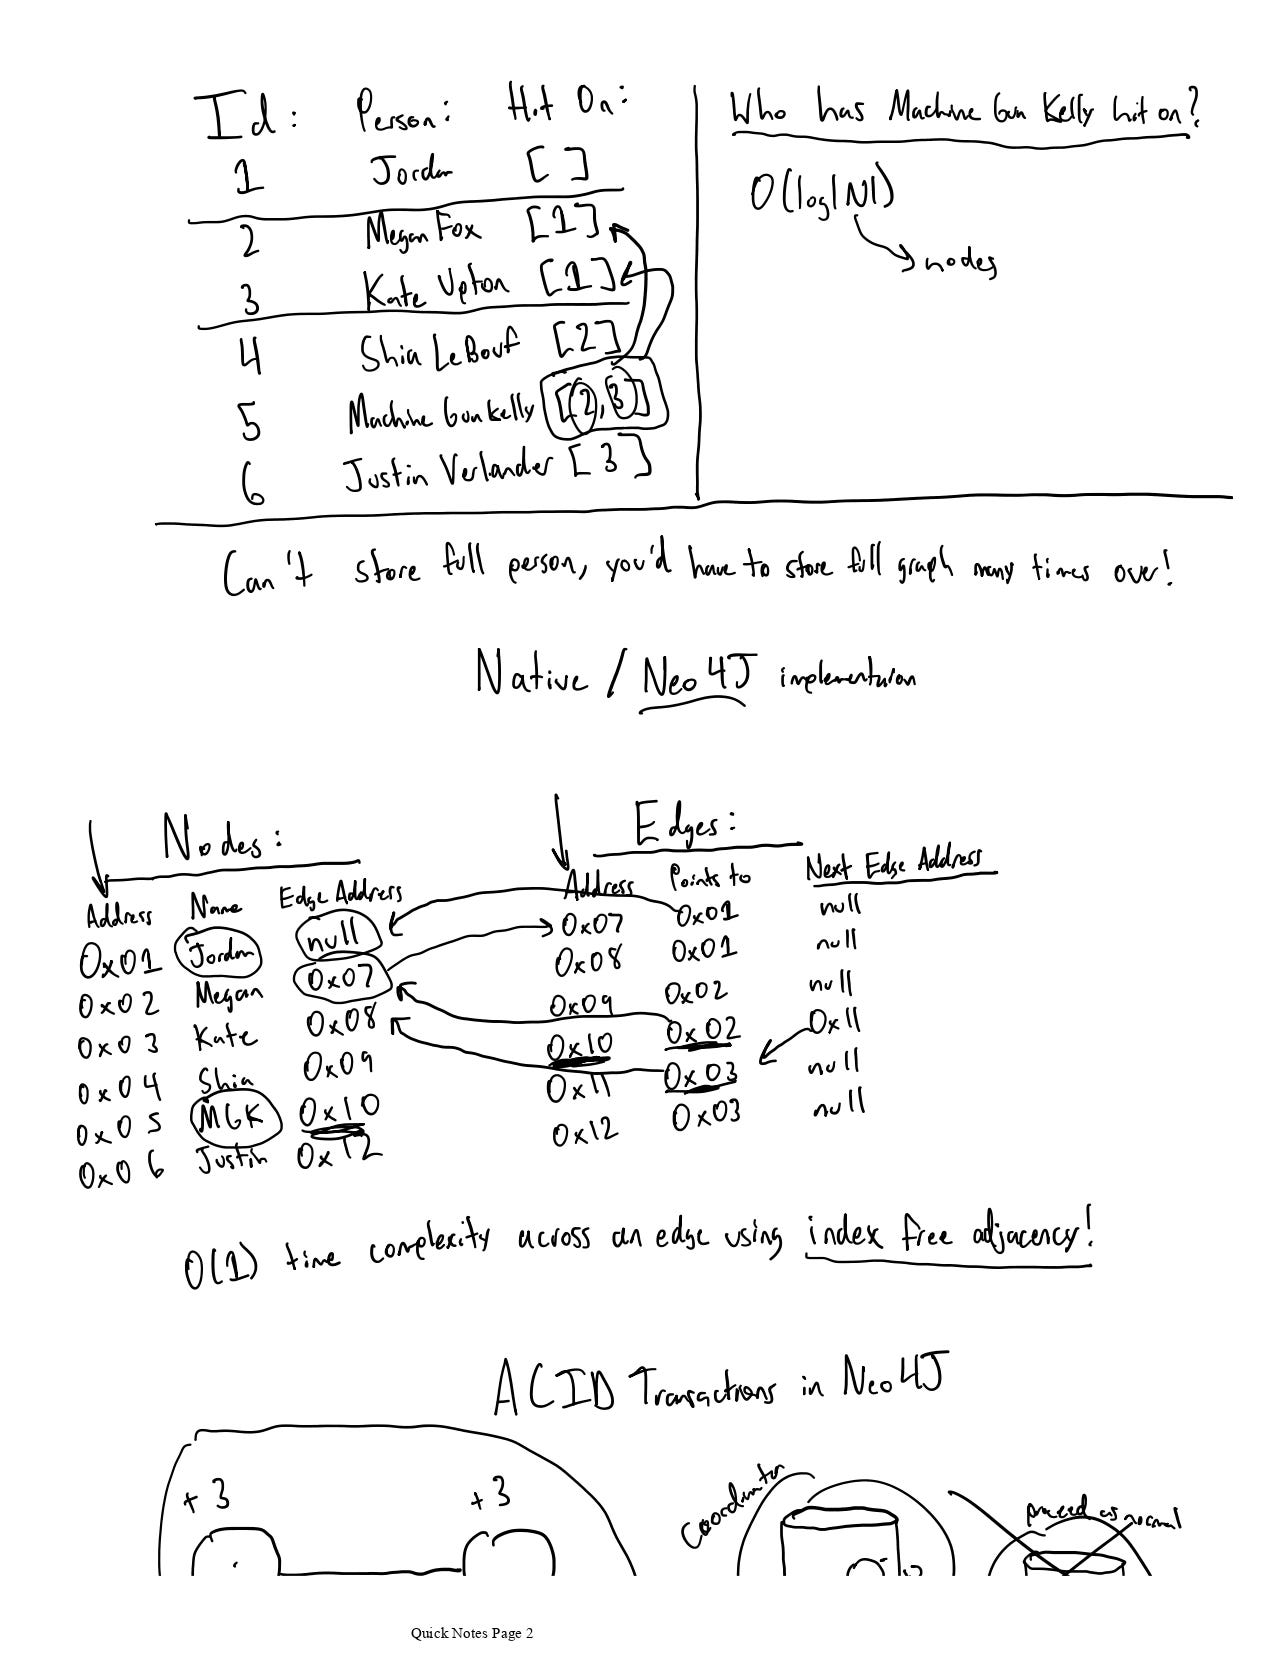 Id: Person: Hit On:
1 Jordan [ ]
2 Megan Fox [1]
3 Kate Upton [1]
4 Shia LeBouf [2]
5 Machine Gun Kelly [2,3]
6 Justin Verlander [3]
Who has Machine Gun Kelly hit on?
O(log|N|)
nodes
Can't store full person, you'd have to store full graph many times over!
Native / Neo4J implementation
Nodes:
Address Name Edge Address
0x01 Jordan null
0x02 Megan 0x07
0x03 Kate 0x08
0x04 Shia 0x09
0x05 MGK 0x10
0x06 Justin 0x12
Edges:
Address Points to Next Edge Address
0x07 0x01 null
0x08 0x01 null
0x09 0x02 null
0x10 0x02 0x11
0x11 0x03 null
0x12 0x03 null
O(1) time complexity across an edge using index free adjacency!
ACID Transactions in Neo4J
+3 +3
Coordinator
proceed as normal
Quick Notes Page 2